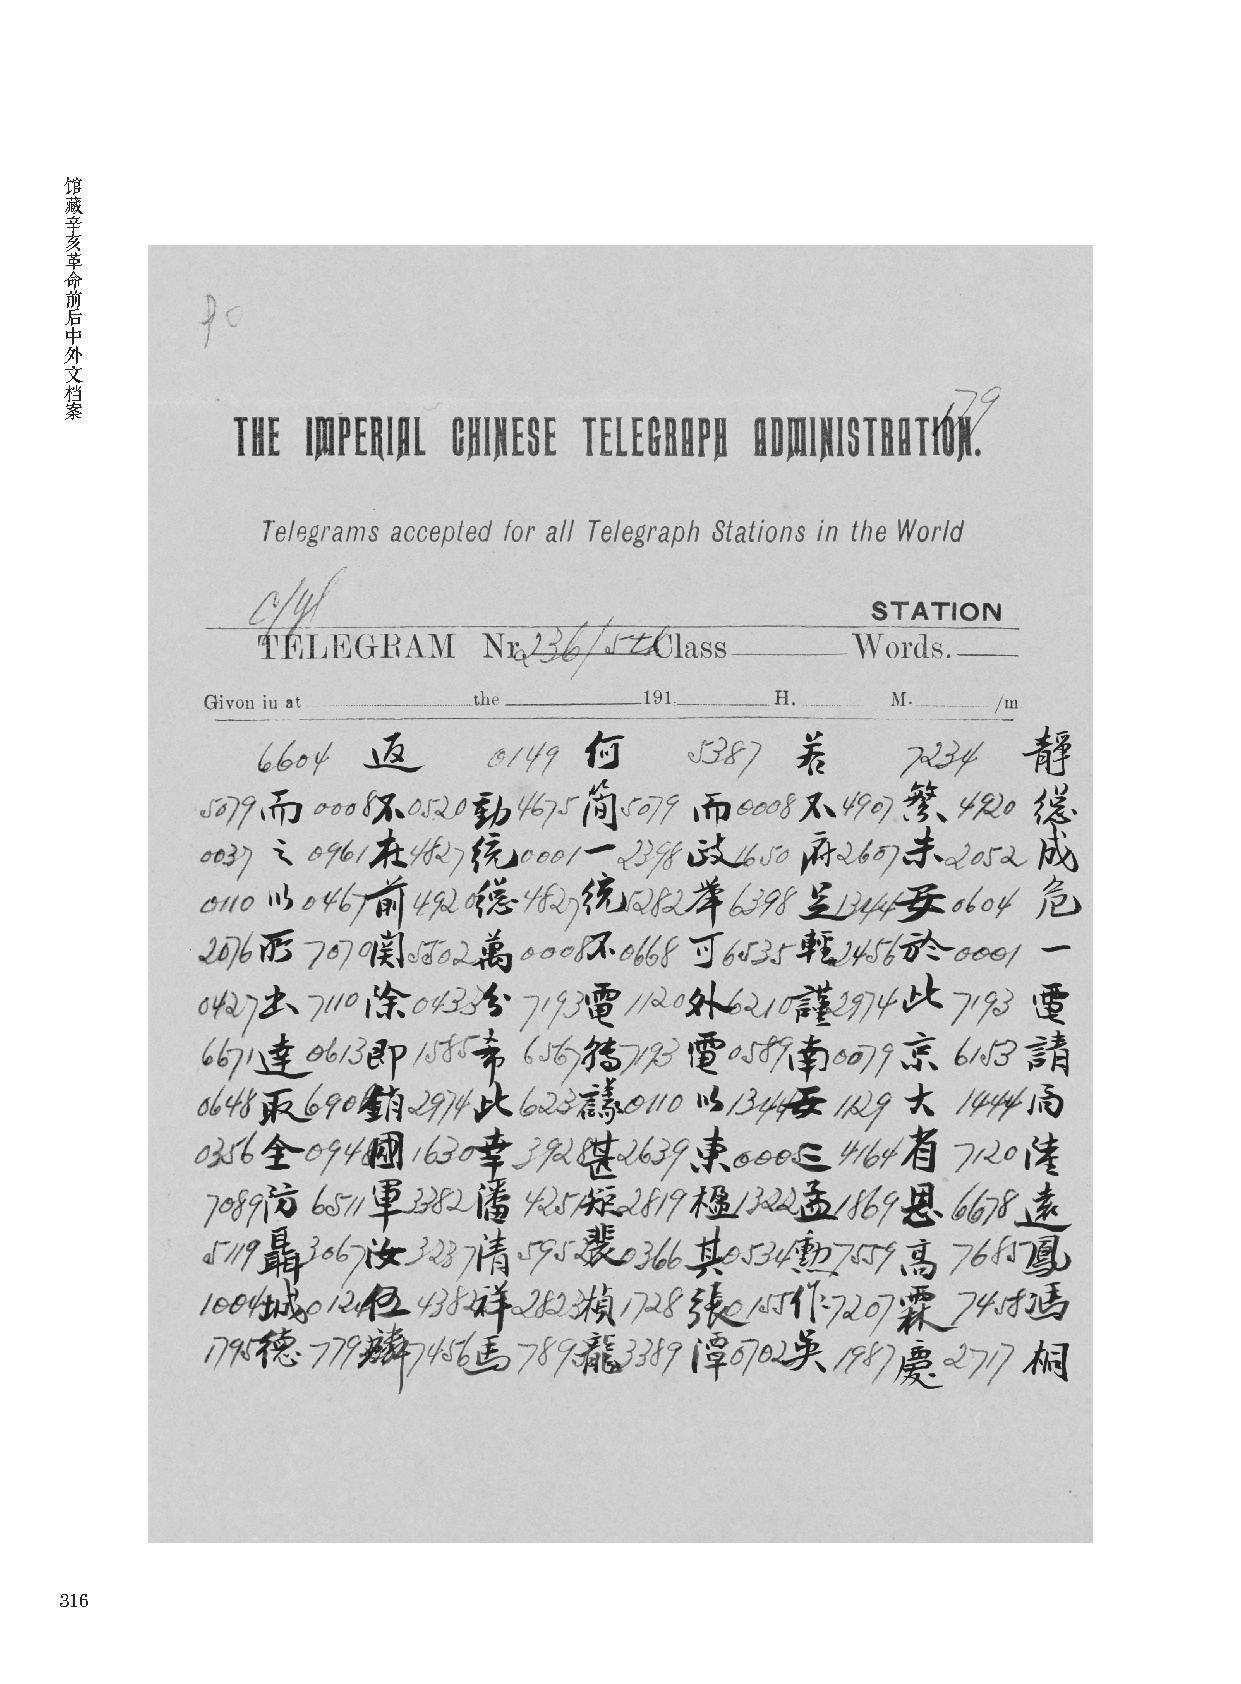 馆藏辛亥革命前后中外文档案
179
THE IMPERIAL CHINESE TELEGRAPH ADMINISTRATION.
Telegrams accepted for all Telegraph Stations in the World
c/yl
STATION
TELEGRAM Nr 236/5th Class Words.
Givon iu at the 191 H. M. /m
6604 返 0149 何 5387 若 7234 靜
5079 而 0008 不 0520 動 4675 簡 5079 而 0008 不 4907 繁 4920 總
0037 之 0961 在 4827 統 0001 一 2398 政 1650 府 2607 未 2052 成
0110 以 0467 前 4920 總 4827 統 5282 舉 6398 足 1344 安 0604 危
2076 所 7070 関 5502 萬 0008 不 0668 可 6535 輕 2456 於 0001 一
0427 出 7110 除 0433 分 7193 電 1120 外 6210 謹 2974 此 7193 電
6671 達 0613 即 1585 希 6567 轉 7193 電 0589 南 0079 京 6153 請
0648 取 6904 銷 2974 此 6231 議 0110 以 1344 安 1129 大 1444 局
0356 全 0948 國 1630 幸 3928 甚 2639 東 0005 三 4164 省 7120 陸
7089 防 6511 軍 3382 潘 4251 矩 2819 楹 1322 孟 1869 恩 6678 遠
5119 聶 3067 汝 3237 清 5952 裴 0366 其 0534 勲 7559 高 7685 鳳
1004 城 0124 伍 4382 祥 2823 楨 1728 張 0155 作 7207 霖 7458 馮
1795 德 7792 麟 7456 馬 7893 龍 3389 潭 0702 吳 1987 慶 2717 桐
316